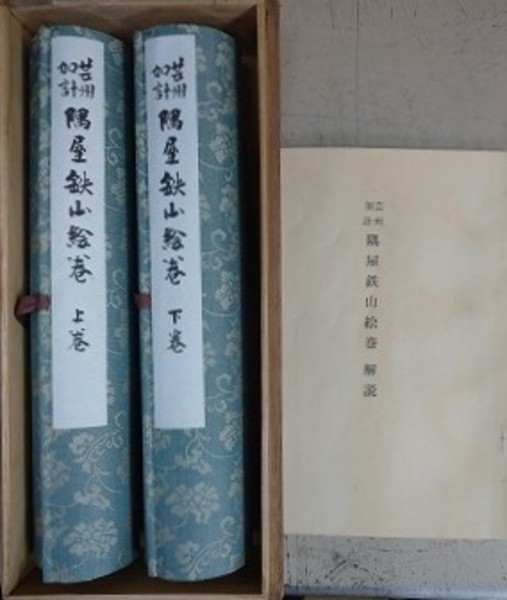 芸州
加計
隅屋鉄山絵巻 上巻
芸州
加計
隅屋鉄山絵巻 下巻
芸州
加計
隅屋鉄山絵巻 解説